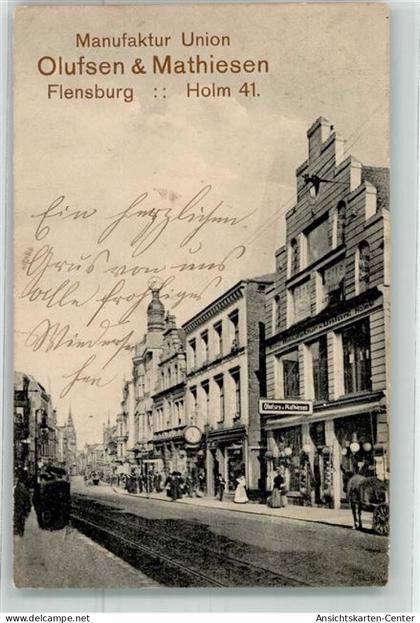 Manufaktur Union
Olufsen & Mathiesen
Flensburg :: Holm 41.
Ein herzlichen
Grus von uns
alle frohes
Wieder
sehen
Olufsen & Mathiesen
www.ansichtskarten-center.de
Ansichtskarten-Center